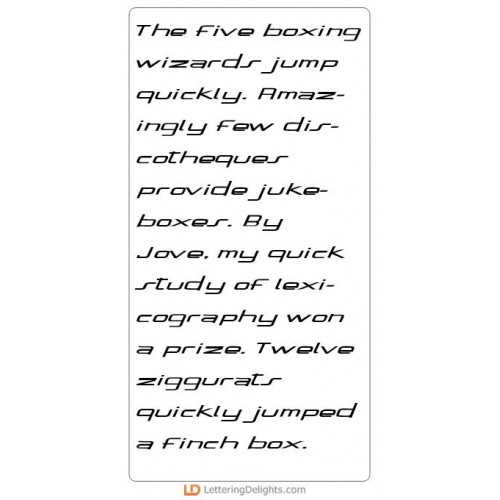 The five boxing
wizards jump
quickly. Amaz-
ingly few dis-
cotheques
provide juke-
boxes. By
Jove, my quick
study of lexi-
cography won
a prize. Twelve
ziggurats
quickly jumped
a finch box.
LD LetteringDelights.com